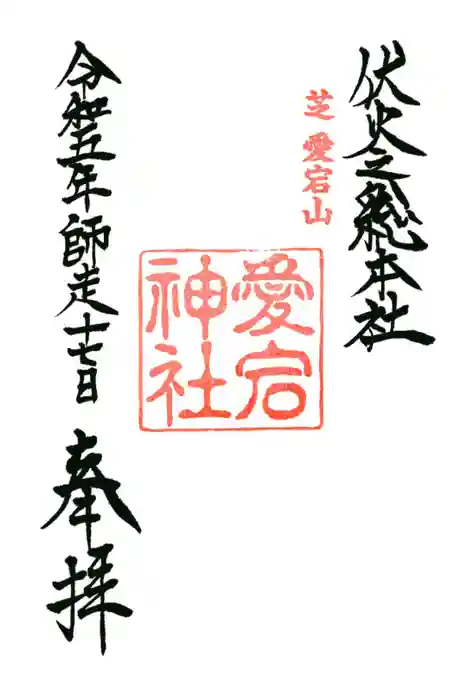 伏火之総本社
芝 愛宕山
愛宕
神社
令和五年師走十七日
奉拝